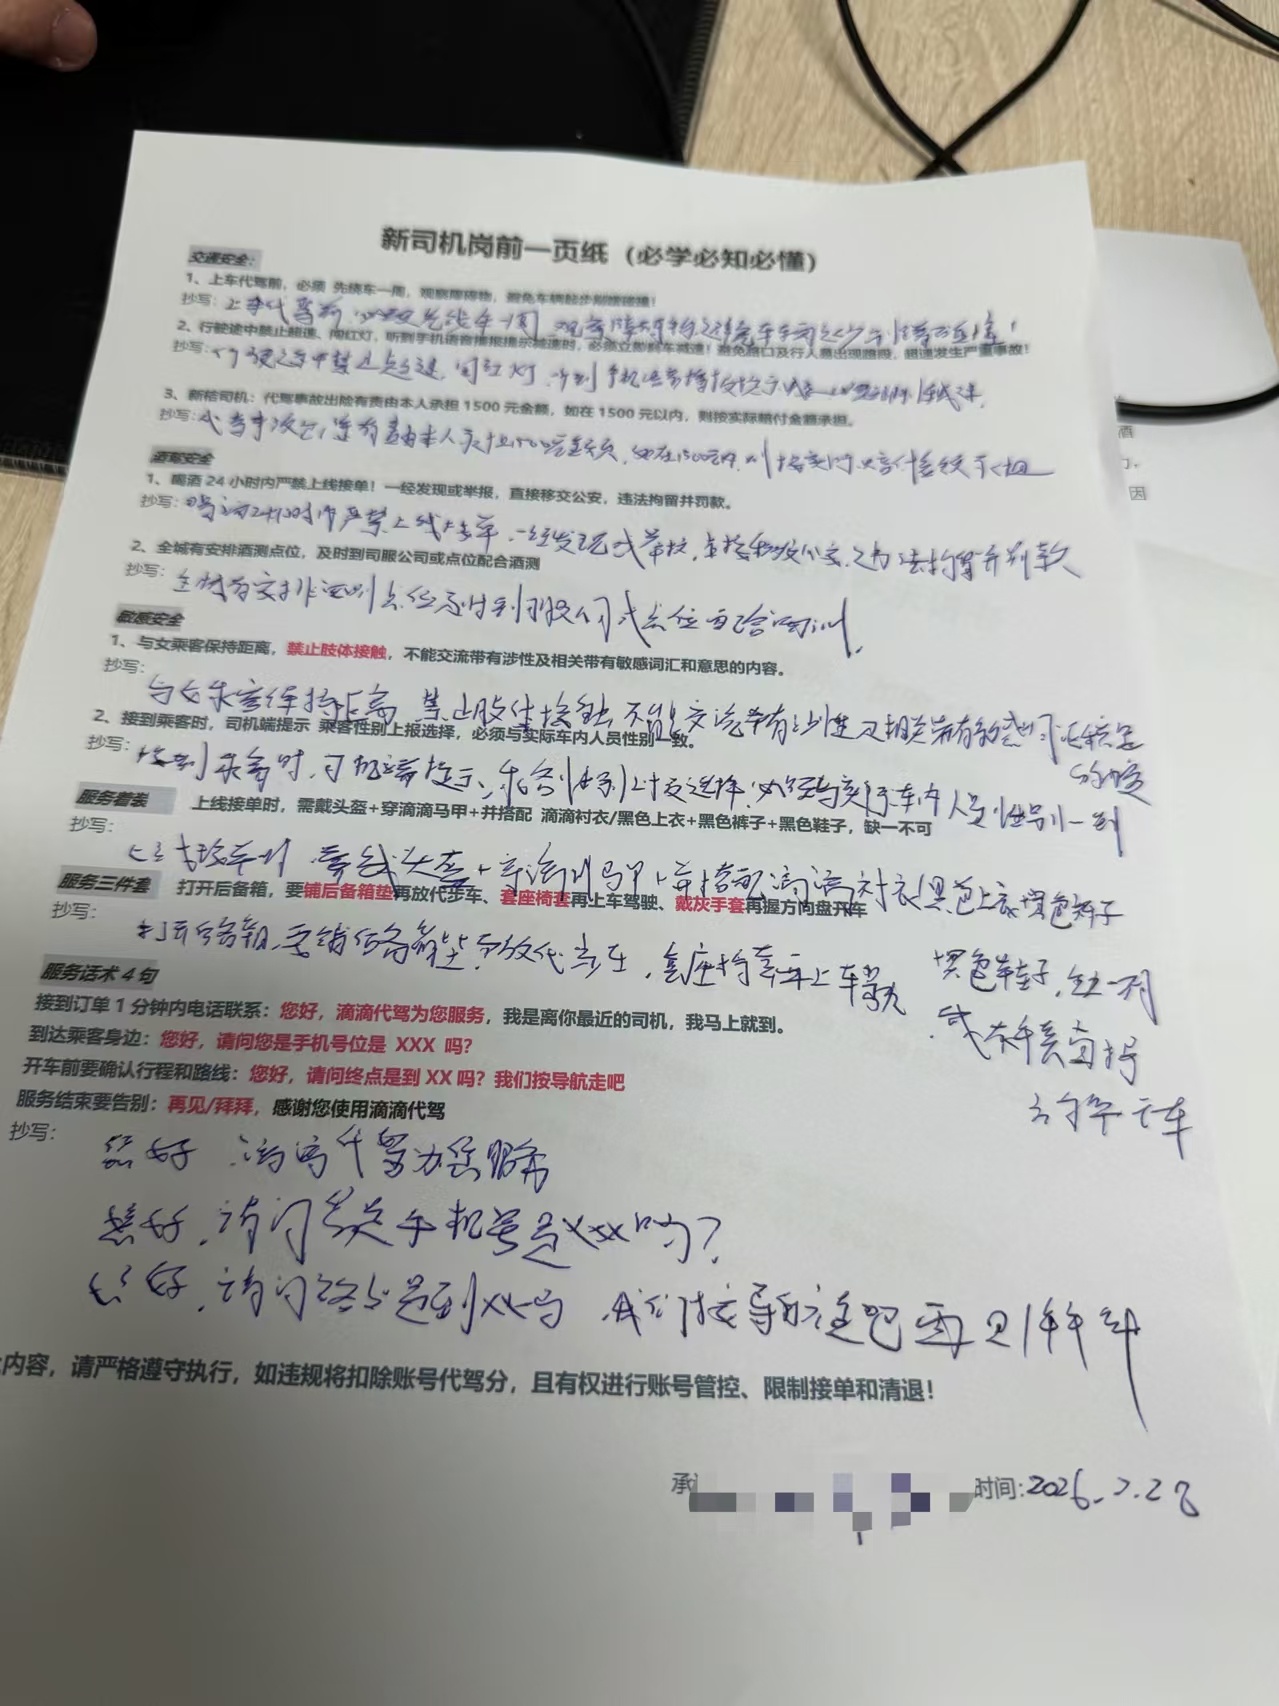 新司机岗前一页纸（必学必知必懂）
交通安全：
1、上车代驾前，必须 先绕车一周，观察障碍物，避免车辆起步剐蹭碰撞！
抄写：上车代驾前 必须先绕车一周 观察障碍物避免车辆起步剐蹭碰撞！
2、行驶途中禁止超速、闯红灯，听到手机语音播报提示减速时，必须立即刹车减速！避免路口及行人悬出现路段，超速发生严重事故！
抄写：行驶途中禁止超速，闯红灯，听到手机语音播报提示减速
3、新桔司机：代驾事故出险有责由本人承担 1500 元金额，如在 1500 元以内，则按实际赔付金额承担。
抄写：代驾事故出险有责由本人承担1500元金额，如在1500元内，则按实际赔付金额承担
酒驾安全
1、喝酒 24 小时内严禁上线接单！一经发现或举报，直接移交公安，违法拘留并罚款。
抄写：喝酒24小时内严禁上线接单，一经发现或举报，直接移交公安，违法拘留并罚款
2、全城有安排酒测点位，及时到司服公司或点位配合酒测
抄写：全城有安排酒测点位及时到司服公司或点位配合酒测。
敏感安全
1、与女乘客保持距离，禁止肢体接触，不能交流带有涉性及相关带有敏感词汇和意思的内容。
抄写：
与女乘客保持距离 禁止肢体接触 不能交流带有涉性及相关带有敏感词汇和意思
的内容
2、接到乘客时，司机端提示 乘客性别上报选择，必须与实际车内人员性别一致。
抄写：接到乘客时，司机端提示，乘客性别上报选择，必须与实际车内人员性别一致
服务着装 上线接单时，需戴头盔+穿滴滴马甲+并搭配 滴滴衬衣/黑色上衣+黑色裤子+黑色鞋子，缺一不可
抄写：
头盔+穿滴滴马甲+并搭配滴滴衬衣黑色上衣黑色裤子
黑色鞋子，缺一不可
服务三件套 打开后备箱，要铺后备箱垫再放代步车、套座椅套再上车驾驶、戴灰手套再握方向盘开车
抄写：
打开后备箱，要铺后备箱垫再放代步车，套座椅套再上车驾驶
方向盘开车
服务话术 4 句
接到订单 1 分钟内电话联系：您好，滴滴代驾为您服务，我是离你最近的司机，我马上就到。
到达乘客身边：您好，请问您是手机号位是 XXX 吗？
开车前要确认行程和路线：您好，请问终点是到 XX 吗？我们按导航走吧
服务结束要告别：再见/拜拜，感谢您使用滴滴代驾
抄写：
您好 滴滴代驾为您服务
您好，请问您是手机号是XXX吗？
您好，请问终点是到XX吗，我们按导航走吧 再见/拜拜
内容，请严格遵守执行，如违规将扣除账号代驾分，且有权进行账号管控、限制接单和清退！
承 时间：2026.2.28